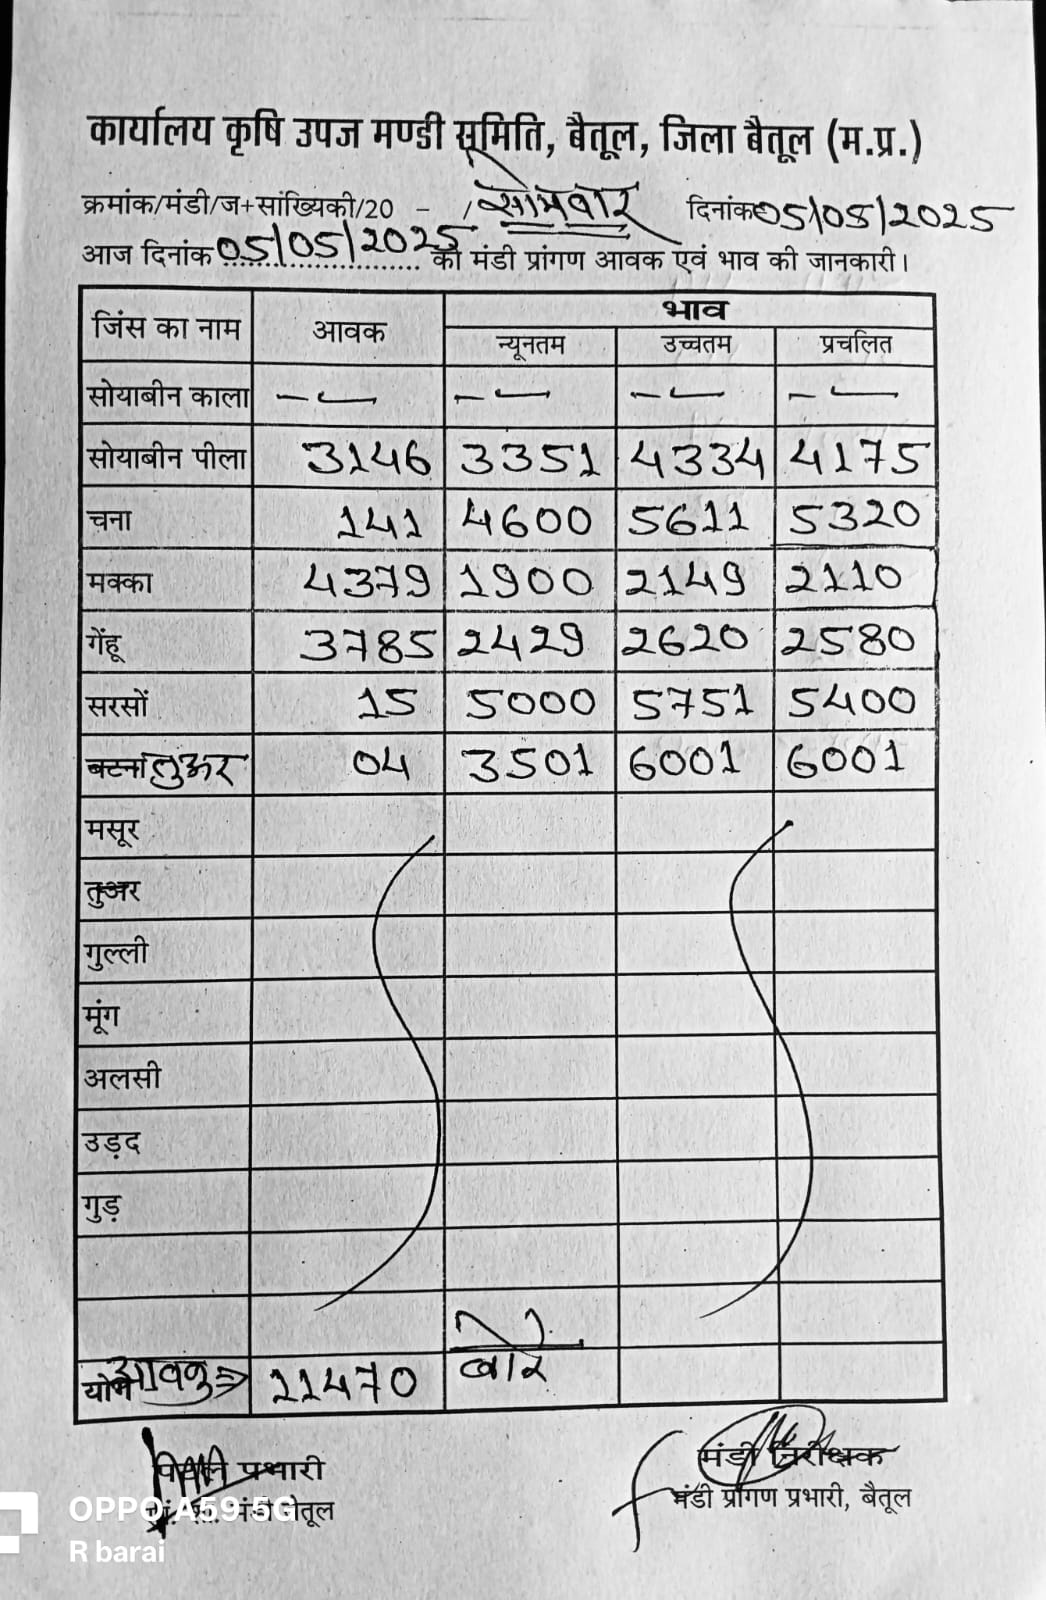 कार्यालय कृषि उपज मण्डी समिति, बैतूल, जिला बैतूल (म.प्र.)
क्रमांक/मंडी/ज+सांख्यिकी/20 - / सोमवार दिनांक 05/05/2025
आज दिनांक 05/05/2025 को मंडी प्रांगण आवक एवं भाव की जानकारी।
जिंस का नाम आवक भाव
न्यूनतम उच्चतम प्रचलित
सोयाबीन काला -- -- -- --
सोयाबीन पीला 3146 3351 4334 4175
चना 141 4600 5611 5320
मक्का 4379 1900 2149 2110
गेंहू 3785 2429 2620 2580
सरसों 15 5000 5751 5400
बटना तुअर 04 3501 6001 6001
मसूर
तुअर
गुल्ली
मूंग
अलसी
उड़द
गुड़
योग आवक 11470 बोरे
प्रभारी मंडी निरीक्षक
मंडी बैतूल मंडी प्रांगण प्रभारी, बैतूल
OPPO A59 5G
R barai